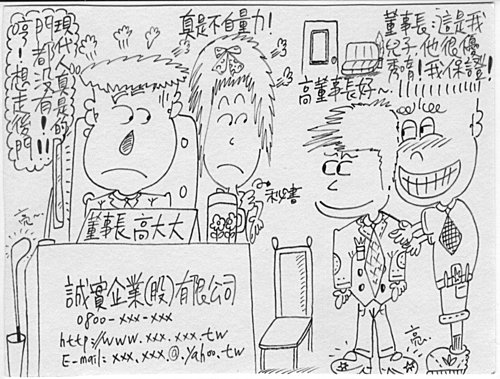 哼!想走後門!!
門都沒有!
現代人真是的
真是不自量力!
董事長,這是我
兒子,他很優
秀唷!我保證!
高董事長好~
秘書
董事長高大大
誠實企業(股)有限公司
0800-xxx-xxx
http://www.xxx.xxx.tw
E-mail: xxx.xxx.@.yahoo.tw
亮~
亮~